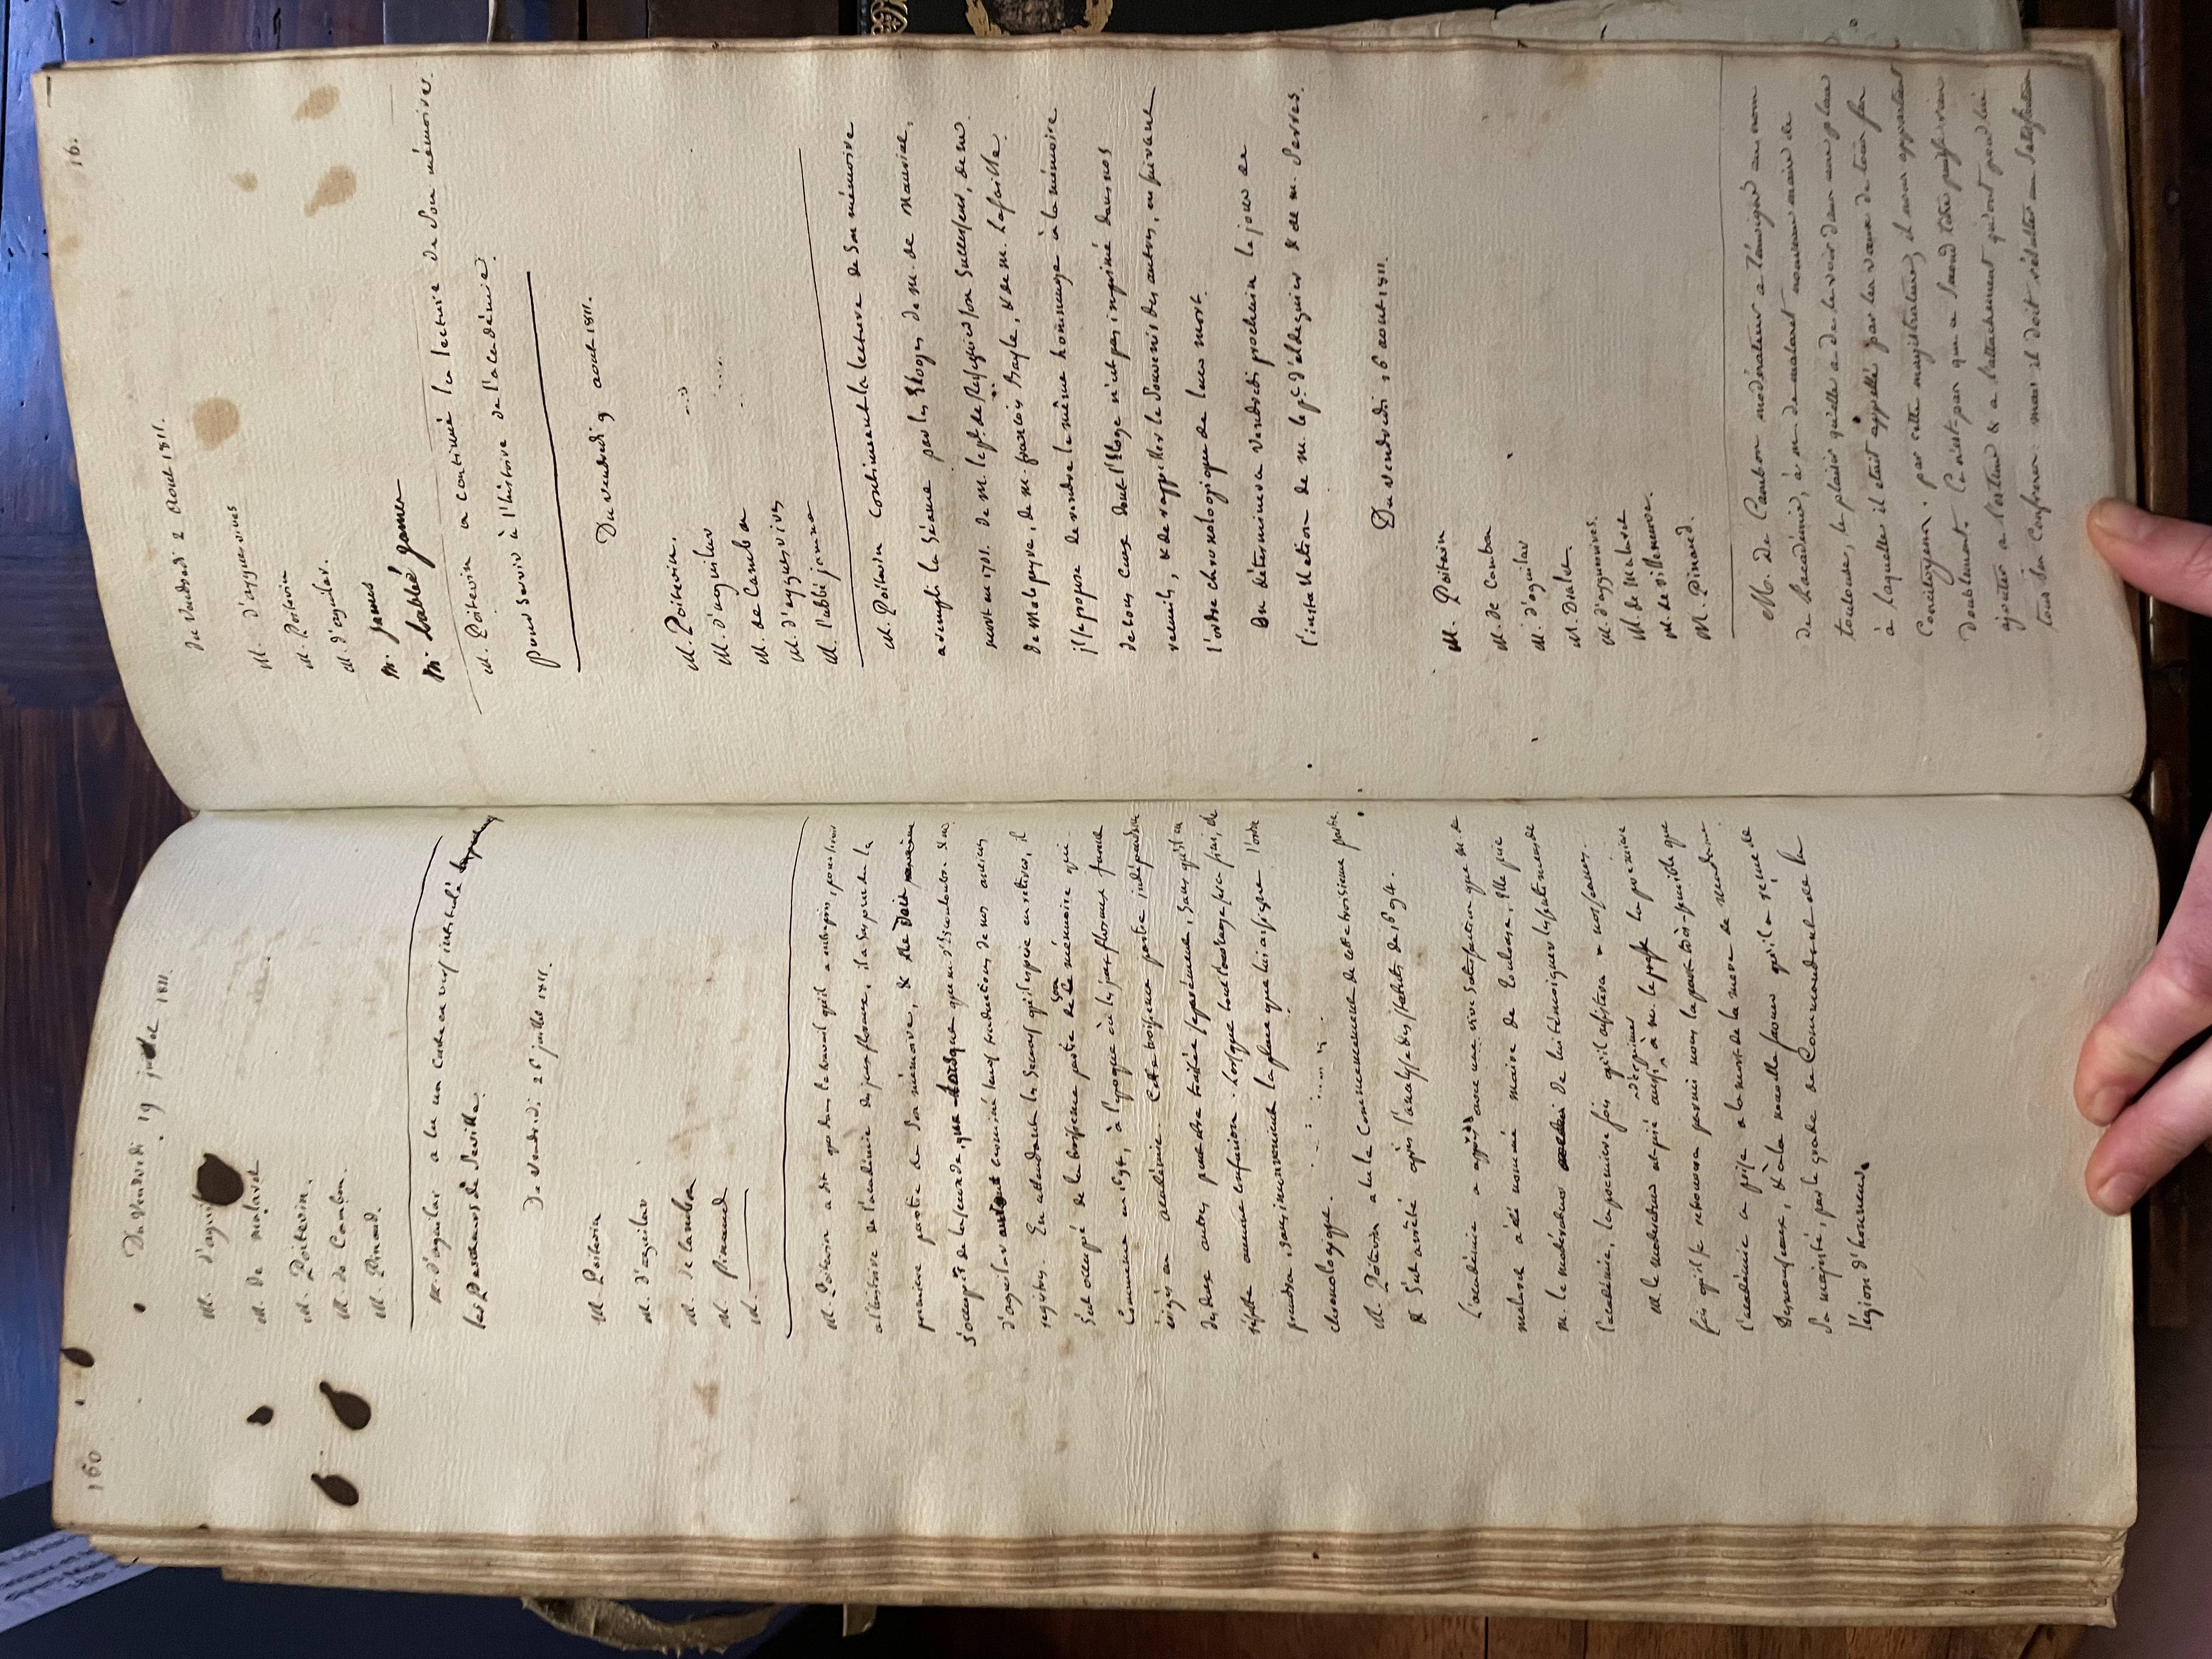 160
Du Vendredi 19 juillet 1811.
M. d'aguilar
M. de malaret
M. Poitevin.
M. de Cambon.
M. Pinaud.
M. d'aguilar a lu un Conte en vers intitulé
les Danseurs de Seville.
De Vendredi 26 juillet 1811.
M. Poitevin
M. d'aguilar
M. de Cambon
M. Pinaud
M.
M. Poitevin a dit que dans le travail qu'il a entrepris, pour servir
a l'histoire de l'académie des jeux floraux, il a suspendu la
première partie de son mémoire, & ne doit
s'occuper de la seconde, que lorsque que m. d'Escouloubre & m.
d'aguilar auront terminé leurs traductions de nos anciens
registres. En attendant les secours qu'il espere en retirer, il
s'est occupé de la troisieme partie de son mémoire qui
Commence en 1694, à l'epoque où les jeux floraux furent
érigés en académie. Cette troisieme partie indépendante
des deux autres peut etre traitée separément, sans qu'il en
résulte aucune confusion. Lorsque tout l'ouvrage sera fini, elle
prendra, sans inconvenient la place que lui assigne l'ordre
chronologique.
M. Poitevin a lu le Commencement de cette troisieme partie.
& s'est arrêté après l'analyse des statuts de 1694.
L'académie a appris avec une vive satisfaction que m. de
malaret a été nommé maire de Toulouse, Elle prie
m. le modérateur de lui témoigner les sentimens de
l'académie, la premiere fois qu'il assistera a nos seances.
M. le moderateur est prié aussi d'exprimer à m. le prefet la premiere
fois qu'il se retrouvera parmi nous la part très-sensible que
l'académie a prise a la mort de la mere de madame
Desmousseaux, & à la nouvelle faveur qu'il a reçue de
Sa majesté, par le grade de Commandant de la
légion d'honneur.
16.
Du Vendredi 2 Aout 1811.
M. d'ayguesvives
M. Poitevin
M. d'aguilar.
M. jamme
M. l'abbé jamme
M. Poitevin a continué la lecture de son mémoire
pour servir à l'histoire de l'académie.
Du vendredi 9 aout 1811.
M. Poitevin.
M. d'aguilar
M. de Cambon
M. d'ayguesvives
M. l'abbé jamme
M. Poitevin Continuant la lecture de son mémoire
a rempli la Séance par les Eloges de M. de Nauviac,
mort en 1711. de M. le pt. de Resseguier son Successeur, de m.
de Malapeyre, de m. francois Bayle, & de m. Lafaille.
il se propose de rendre le même hommage à la mémoire
de tous ceux dont l'Eloge n'est pas imprimé dans nos
recueils, & de rappeller le Souvenir des autres, en suivant
l'ordre chronologique de leur mort.
On déterminera vendredi prochain le jour de
l'installation de m. le pt. d'aldeguier & de m. Serres.
Du vendredi 16 aout 1811.
M. Poitevin
M. de Cambon
M. d'aguilar
M. Dralet.
M. d'ayguesvives.
M. de Malaret
M. de Villeneuve.
M. Pinaud.
M. de Cambon modérateur a témoigné au nom
de l'académie, à m. de malaret nouveau maire de
toulouse, le plaisir qu'elle a de le voir dans une place
à laquelle il était appellé par les vœux de tous ses
Concitoyens. par cette magistrature, il nous appartient
doublement. Ce n'est pas que ce second titre puisse rien
ajouter a l'estime & a l'attachement qu'ont pour lui
tous ses Confreres. mais il doit résulter une satisfaction